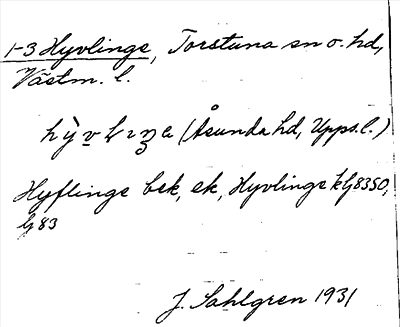 1-3 Hyvlinge, Torstuna sn o. hd,
Västm. l.
(Åsunda hd, Upps. l.)
Hyflinge bek, ek, Hyvlinge kG8350,
G83
J. Sahlgren 1931